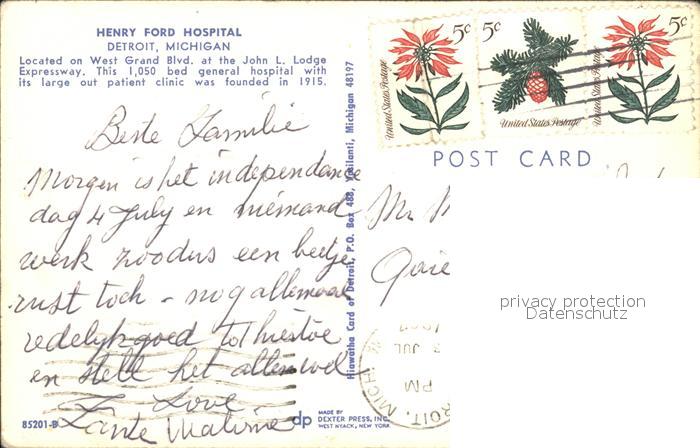 HENRY FORD HOSPITAL
DETROIT, MICHIGAN
Located on West Grand Blvd. at the John L. Lodge
Expressway. This 1,050 bed general hospital with
its large out patient clinic was founded in 1915.
Beste Familie
Morgen is het independance
dag 4 July en niemand
werk zoodus een beetje
rust toch - nog allemaal
redelyk goed tot hiertoe
en stell het alten wel
Love
Tante Malvine
85201-B
dp
MADE BY
DEXTER PRESS, INC.
WEST NYACK, NEW YORK
Hiawatha Card of Detroit, P.O. Box 488, Ypsilanti, Michigan 48197
5c
United States Postage
5c
United States Postage
5c
United States Postage
POST CARD
Mr
privacy protection
Datenschutz
3 JUL
PM
ROIT, MICH